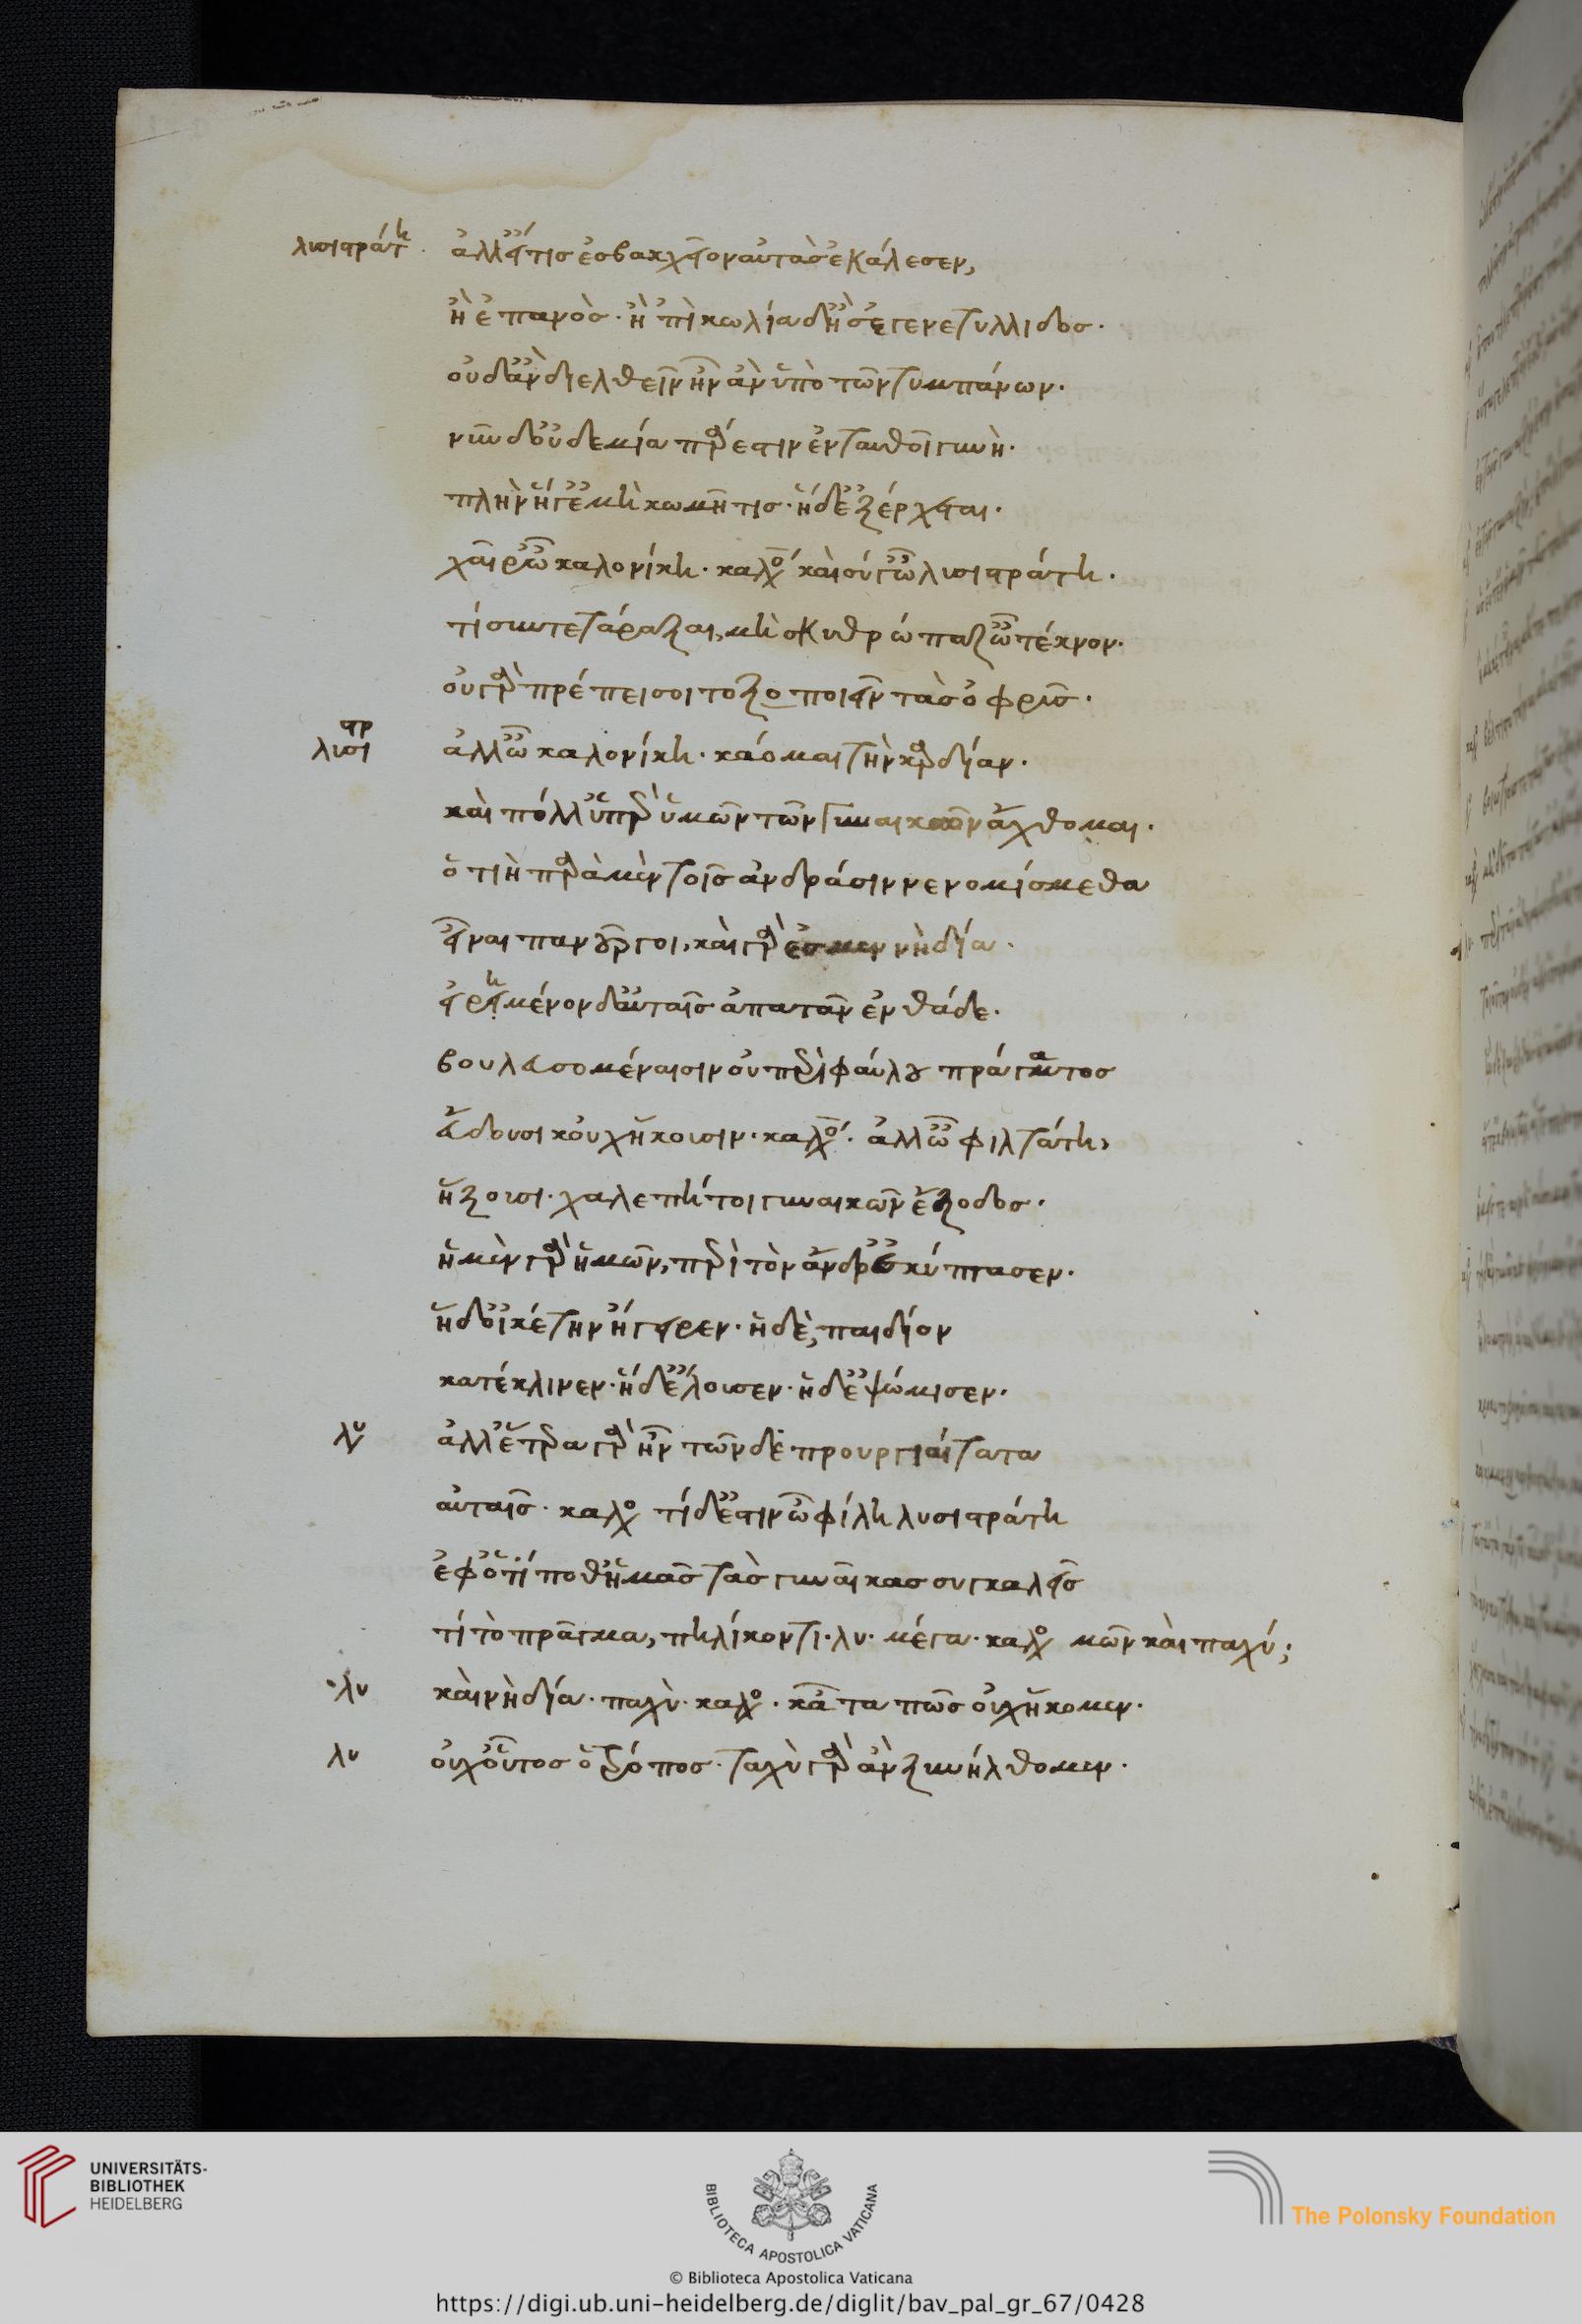 λυσιστράτη. ἀλλ' εἴ τις ἐς βακχεῖον αὐτὰς ἐκάλεσεν,
ἢ ἐς πανὸς. ἢ 'πὶ κωλίαδ' ἢ 'ς γενετυλλίδος.
οὐδ' ἂν διελθεῖν ἦν ἂν ὑπὸ τῶν τυμπάνων.
νῦν δ' οὐδεμία πάρεστιν ἐνταυθοῖ γυνή.
πλὴν ἥ γ' ἐμὴ κωμῆτις. ἥδ' ἐξέρχεται.
χαῖρ' ὦ καλονίκη. καλο καὶ σύ γ' ὦ λυσιστράτη.
τί συντετάραξαι, μὴ σκυθρώπαζ' ὦ τέκνον.
οὐ γὰρ πρέπει σοι τοξοποιεῖν τὰς ὀφρῦς.
λυσιστρ ἀλλ' ὦ καλονίκη. κάομαι τὴν καρδίαν.
καὶ πόλλ' ὑπὲρ ὑμῶν τῶν γυναικῶν ἄχθομαι.
ὁτιὴ παρὰ μὲν τοῖς ἀνδράσιν νενομίσμεθα
εἶναι πανοῦργοι, καὶ γάρ ἐσμεν νὴ δία.
εἰρημένον δ' αὐταῖς ἀπαντᾶν ἐνθάδε.
βουλευσομέναισιν οὐ περὶ φαύλου πράγματος
εὕδουσι κ' οὐχ ἥκουσιν. καλο. ἀλλ' ὦ φιλτάτη,
ἥξουσι. χαλεπή τοι γυναικῶν ἔξοδος.
ἡ μὲν γὰρ ἡμῶν, περὶ τὸν ἄνδρ' ἐκύπτασεν.
ἡ δ' οἰκέτην ἤγειρεν. ἡ δὲ, παιδίον
κατέκλινεν. ἥδ' ἔλουσεν. ἡ δ' ἐψώμισεν.
λυ ἀλλ' ἕτερα γὰρ ἦν τῶνδε προυργιαίτατα
αὐταῖς. καλο τί δ' ἐστιν ὦ φίλη λυσιστράτη
ἐφ' ὅ τί ποθ' ἡμᾶς τὰς γυναῖκας συγκαλεῖς
τί τὸ πρᾶγμα, πηλίκον τι. λυ. μέγα. καλο μῶν καὶ παχύ;
λυ καὶ νὴ δία. παχὺ. καλο. κᾆτα πῶς οὐχ ἥκομεν.
λυ οὐχ οὗτος ὁ τρόπος. ταχὺ γὰρ ἂν ξυνήλθομεν.
UNIVERSITÄTS-
BIBLIOTHEK
HEIDELBERG
BIBLIOTECA APOSTOLICA VATICANA
© Biblioteca Apostolica Vaticana
The Polonsky Foundation
https://digi.ub.uni-heidelberg.de/diglit/bav_pal_gr_67/0428